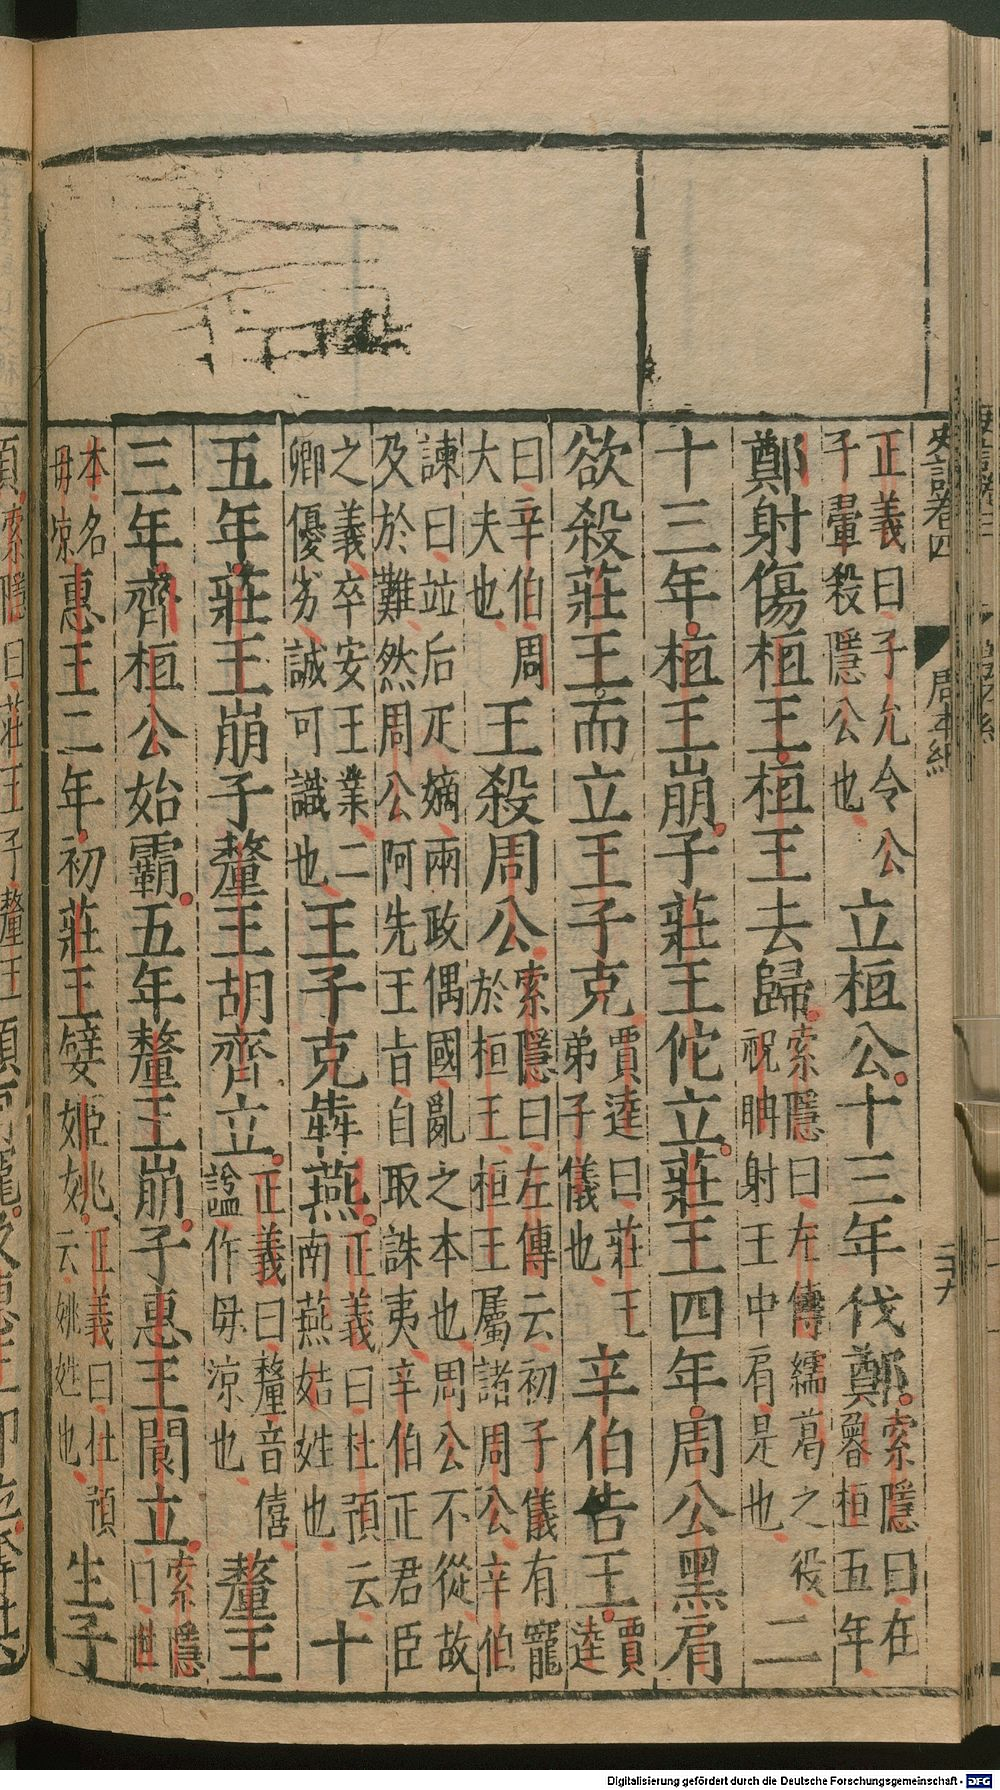 史記卷四
周本紀
三十九
正義曰子允令公
子翬殺隱公也
立桓公十三年伐鄭
索隱曰在
魯桓五年
鄭射傷桓王桓王去歸
索隱曰左傳繻葛之役
祝聃射王中肩是也
二
十三年桓王崩子莊王佗立莊王四年周公黑肩
欲殺莊王而立王子克
賈逵曰莊王
弟子儀也
辛伯告王
賈
逵
曰辛伯周
大夫也
王殺周公
索隱曰左傳云初子儀有寵
於桓王桓王屬諸周公辛伯
諫曰竝后疋嫡兩政偶國亂之本也周公不從故
及於難然周公阿先王旨自取誅夷辛伯正君臣
之義卒安王業二
卿優劣誠可識也
王子克犇燕
正義曰杜預云
南燕姞姓也
十
五年莊王崩子釐王胡齊立
正義曰釐音僖
諡作毋涼也
釐王
三年齊桓公始霸五年釐王崩子惠王閬立
索隱
曰世
本名
毋凉
惠王二年初莊王嬖姬姚
正義曰杜預
云姚姓也
生子
Digitalisierung gefördert durch die Deutsche Forschungsgemeinschaft - DFG